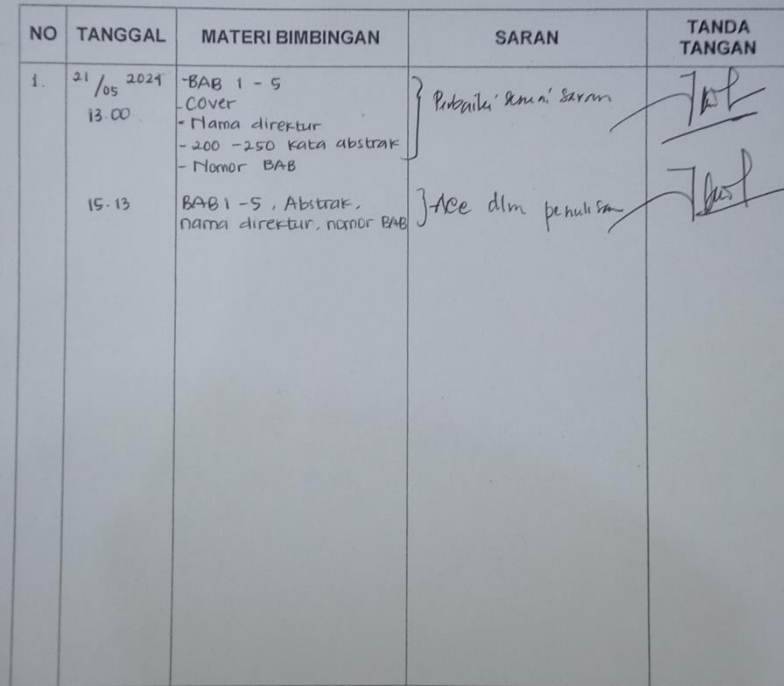 NO TANGGAL MATERI BIMBINGAN SARAN TANDA TANGAN
1. 21/05 2024 -BAB 1 - 5
- Cover
13.00 - Nama direktur
- 200 - 250 kata abstrak
- Nomor BAB
Perbaiki sesuai saran
15.13 BAB 1 - 5, Abstrak,
nama direktur, nomor BAB
Acc dlm penulisan